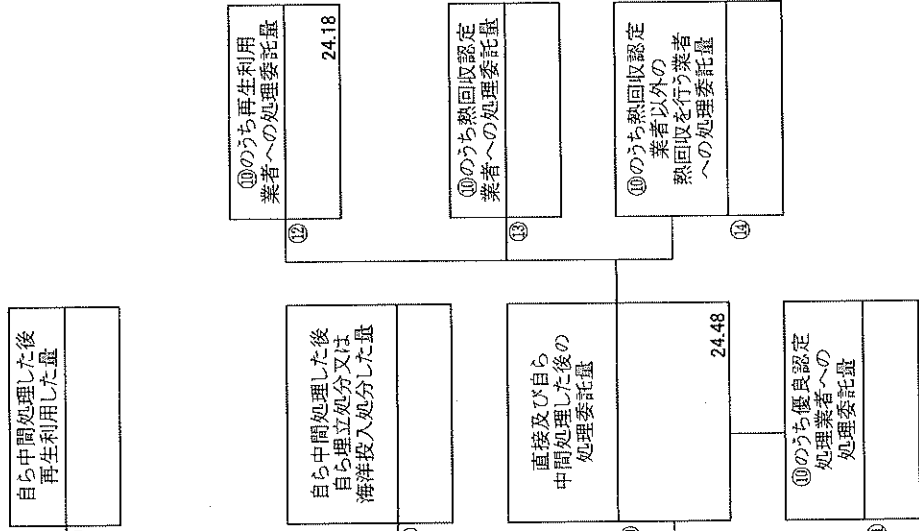 自ら中間処理した後
再生利用した量
自ら中間処理した後
自ら埋立処分又は
海洋投入処分した量
直接及び自ら
中間処理した後の
処理委託量
24.48
⑩のうち優良認定
処理業者への
処理委託量
⑫
⑩のうち再生利用
業者への処理委託量
24.18
⑬
⑩のうち熱回収認定
業者への処理委託量
⑭
⑩のうち熱回収認定
業者以外の
熱回収を行う業者
への処理委託量